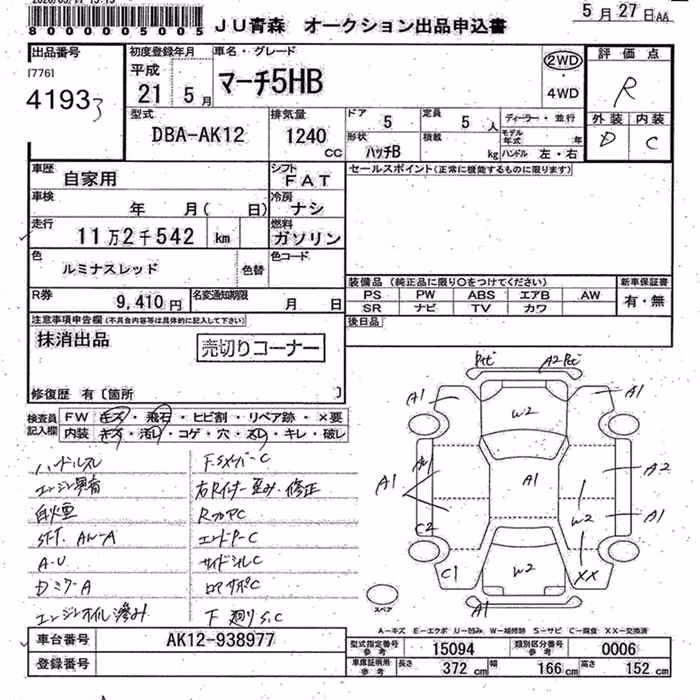 8000005005
JU青森 オークション出品申込書
5月27日AA
出品番号
[776]
4193
初度登録年月
平成
21 5月
車名・グレード
マーチ5HB
2WD
・
4WD
評価点
R
外装 内装
D C
型式
DBA-AK12
排気量
1240
CC
ドア 5
定員 5 人
ディーラー・並行
形状
ハッチB
積載 kg
モデル年式 年
ハンドル 左・右
車歴
自家用
シフト
FAT
セールスポイント(正常に機能するものに限ります)
車検
年 月( 日)
冷房
ナシ
走行
11万2千542 km
燃料
ガソリン
色
ルミナスレッド
色替
色コード
装備品 (純正品に限り○をつけてください)
新車保証書
PS PW ABS エアB AW
有・無
SR ナビ TV カワ
R券
9,410円
名変通知期限
月 日
後日品
注意事項申告欄(不具合内容等は具体的に記入して下さい)
抹消出品
売切りコーナー
修復歴 有〔箇所 〕
検査員記入欄
FW キズ・飛石・ヒビ割・リペア跡・×要
内装 キズ・汚レ・コゲ・穴・スレ・キレ・破レ
ハンドルスレ
エンジン異音
白煙
A-U
エンジンオイル滲み
右Rインナー歪み・修正
サイドシルC
F 廻りS,C
A2
A1
A1
W2
A1
A1
A2
A1
C2
W2
A1
C1
W2
XX
A1
スペア
A-キズ E-エクボ U-凹み W-補修跡 S-サビ C-腐食 XX-交換済
車台番号
AK12-938977
登録番号
型式指定番号 参考
15094
類別区分番号 参考
0006
車庫証明用 参考
長さ 372 cm
幅 166 cm
高さ 152 cm